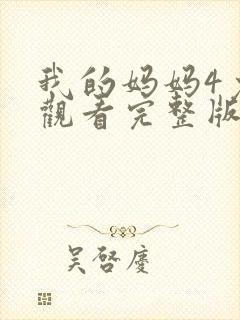 我的妈妈4
觀看完整版
吴啓慶